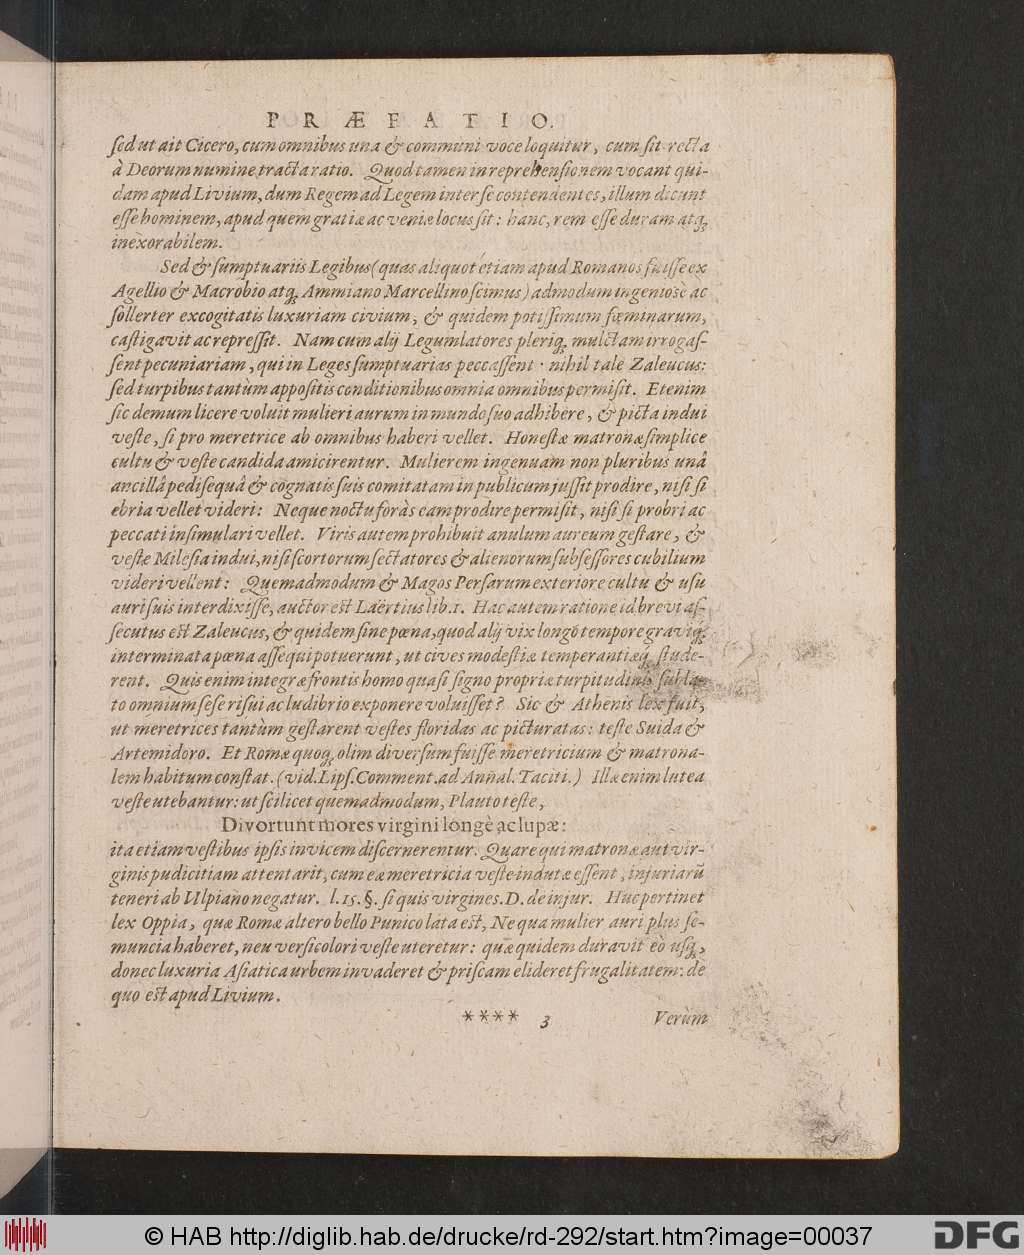 PRÆFATIO.
sed ut ait Cicero, cum omnibus una & communi voce loquitur, cum sit recta
à Deorum numine tracta ratio. Quod tamen in reprehensionem vocant qui-
dam apud Livium, dum Regem ad Legem inter se contendentes, illum dicunt
esse hominem, apud quem gratiæ ac veniæ locus sit: hanc, rem esse duram atq;
inexorabilem.
Sed & sumptuariis Legibus (quas aliquot etiam apud Romanos fuisse ex
Agellio & Macrobio atq; Ammiano Marcellino scimus) admodum ingeniosè ac
sollerter excogitatis luxuriam civium, & quidem potissimum fœminarum,
castigavit ac repressit. Nam cum alij Legumlatores pleriq; mulctam irrogas-
sent pecuniariam, qui in Leges sumptuarias peccassent · nihil tale Zaleucus:
sed turpibus tantùm appositis conditionibus omnia omnibus permisit. Etenim
sic demum licere voluit mulieri aurum in mundo suo adhibere, & picta indui
veste, si pro meretrice ab omnibus haberi vellet. Honestæ matronæ simplice
cultu & veste candida amicirentur. Mulierem ingenuam non pluribus unâ
ancillâ pedisequâ & cognatis suis comitatam in publicum jussit prodire, nisi si
ebria vellet videri: Neque noctu foràs eam prodire permisit, nisi si probri ac
peccati insimulari vellet. Viris autem prohibuit anulum aureum gestare, &
vestæ Milesia indui, nisi scortorum sectatores & alienorum subsessores cubilium
videri vellent: Quemadmodum & Magos Persarum exteriore cultu & usu
auri suis interdixisse, auctor est Laërtius lib. 1. Hac autem ratione id brevi as-
secutus est Zaleucus, & quidem sine pœna, quod alij vix longo tempore graviq;
interminata pœna assequi potuerunt, ut cives modestiæ temperantiæq; stude-
rent. Quis enim integræ frontis homo quasi signo propriæ turpitudinis subla-
to omnium sese risui ac ludibrio exponere voluisset? Sic & Athenis lex fuit,
ut meretrices tantùm gestarent vestes floridas ac picturatas: teste Suida &
Artemidoro. Et Romæ quoq; olim diversum fuisse meretricium & matrona-
lem habitum constat. (vid. Lips. Comment. ad Annal. Taciti.) Illæ enim lutea
veste utebantur: ut scilicet quemadmodum, Plauto teste,
Divortunt mores virgini longè ac lupæ:
ita etiam vestibus ipsis invicem discernerentur. Quare qui matronæ aut vir-
ginis pudicitiam attentarit, cum eæ meretricia veste indutæ essent, injuriarũ
teneri ab Ulpiano negatur. l. 15. §. si quis virgines. D. de injur. Huc pertinet
lex Oppia, quæ Romæ altero bello Punico lata est, Ne qua mulier auri plus se-
muncia haberet, neu versicolori veste uteretur: quæ quidem duravit eò usq;,
donec luxuria Asiatica urbem invaderet & priscam elideret frugalitatem: de
quo est apud Livium.
**** 3 Verùm
© HAB http://diglib.hab.de/drucke/rd-292/start.htm?image=00037
DFG